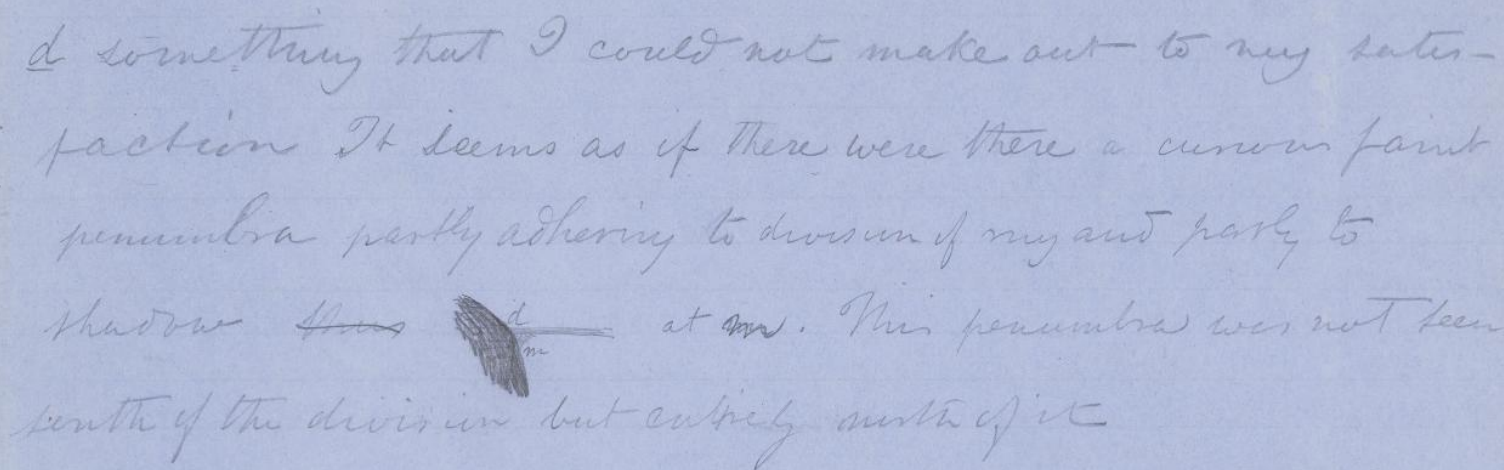 d something that I could not make out to my satis-
faction It seems as if there were there a curious faint
penumbra partly adhering to division of ring and partly to
shadow thus d m at m. This penumbra was not seen
south of the division but entirely north of it